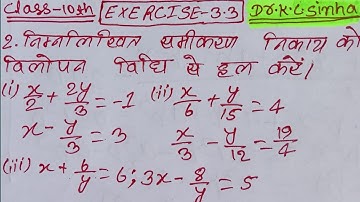 Class-10th EXERCISE-3.3 Dr.K.C.Sinha
2. निम्नलिखित समीकरण निकाय को
विलोपन विधि से हल करें।
(i) x/2 + 2y/3 = -1 (ii) x/6 + y/15 = 4
x - y/3 = 3 x/3 - y/12 = 19/4
(iii) x + 6/y = 6; 3x - 8/y = 5